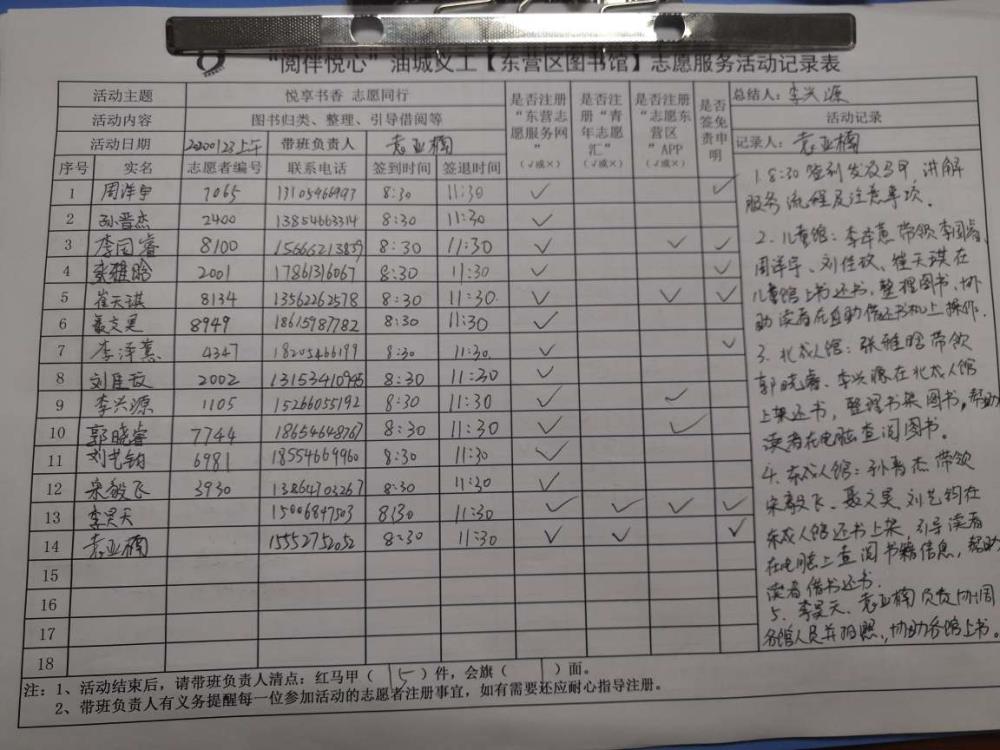 “阅伴悦心”油城义工【东营区图书馆】志愿服务活动记录表
活动主题 悦享书香 志愿同行
活动内容 图书归类、整理、引导借阅等
活动日期 20200123上午 带班负责人 袁亚楠
是否注册“东营志愿服务网” (√或×)
是否注册“青年志愿汇” (√或×)
是否注册“志愿东营区”APP (√或×)
是否签免责申明
总结人：李兴源
活动记录
记录人：袁亚楠
序号 实名 志愿者编号 联系电话 签到时间 签退时间
1 周洋宇 7065 13105466993 8:30 11:30 √ √
2 孙晋杰 2400 13854663314 8:30 11:30 √
3 李国睿 8100 15666213839 8:30 11:30 √ √ √
4 张雅晗 2001 17861316067 8:30 11:30 √ √
5 崔天琪 8134 13562262578 8:30 11:30 √ √ √
6 聂文昊 8949 18615987782 8:30 11:30 √
7 李泽蕙 4347 18205466199 8:30 11:30 √ √
8 刘佳玫 2002 13153410945 8:30 11:30 √
9 李兴源 1105 15266055192 8:30 11:30 √ √
10 郭晓睿 7744 18654648767 8:30 11:30 √ √
11 刘艺钧 6981 18554669960 8:30 11:30 √
12 宋毅飞 3930 13864703267 8:30 11:30 √
13 李昊天 15006847503 8:30 11:30 √ √ √ √
14 袁亚楠 15552752052 8:30 11:30 √ √ √
15
16
17
18
1. 8:30签到发放马甲，讲解
服务流程及注意事项。
2. 儿童馆：李泽蕙带领李国睿、
周洋宇、刘佳玫、崔天琪在
儿童馆上书还书，整理图书、协
助读者在自助借还书机上操作.
3. 北成人馆：张雅晗带领
郭晓睿、李兴源在北成人馆
上架还书，整理书架图书，帮助
读者在电脑查阅图书。
4. 东成人馆：孙晋杰带领
宋毅飞、聂文昊、刘艺钧在
东成人馆还书上架，引导读者
在电脑上查阅书籍信息，帮助
读者借书还书.
5. 李昊天、袁亚楠负责协调
各馆人员并拍照、协助各馆上书。
注：1、活动结束后，请带班负责人清点：红马甲（ 15 ）件，会旗（ ）面。
2、带班负责人有义务提醒每一位参加活动的志愿者注册事宜，如有需要还应耐心指导注册。